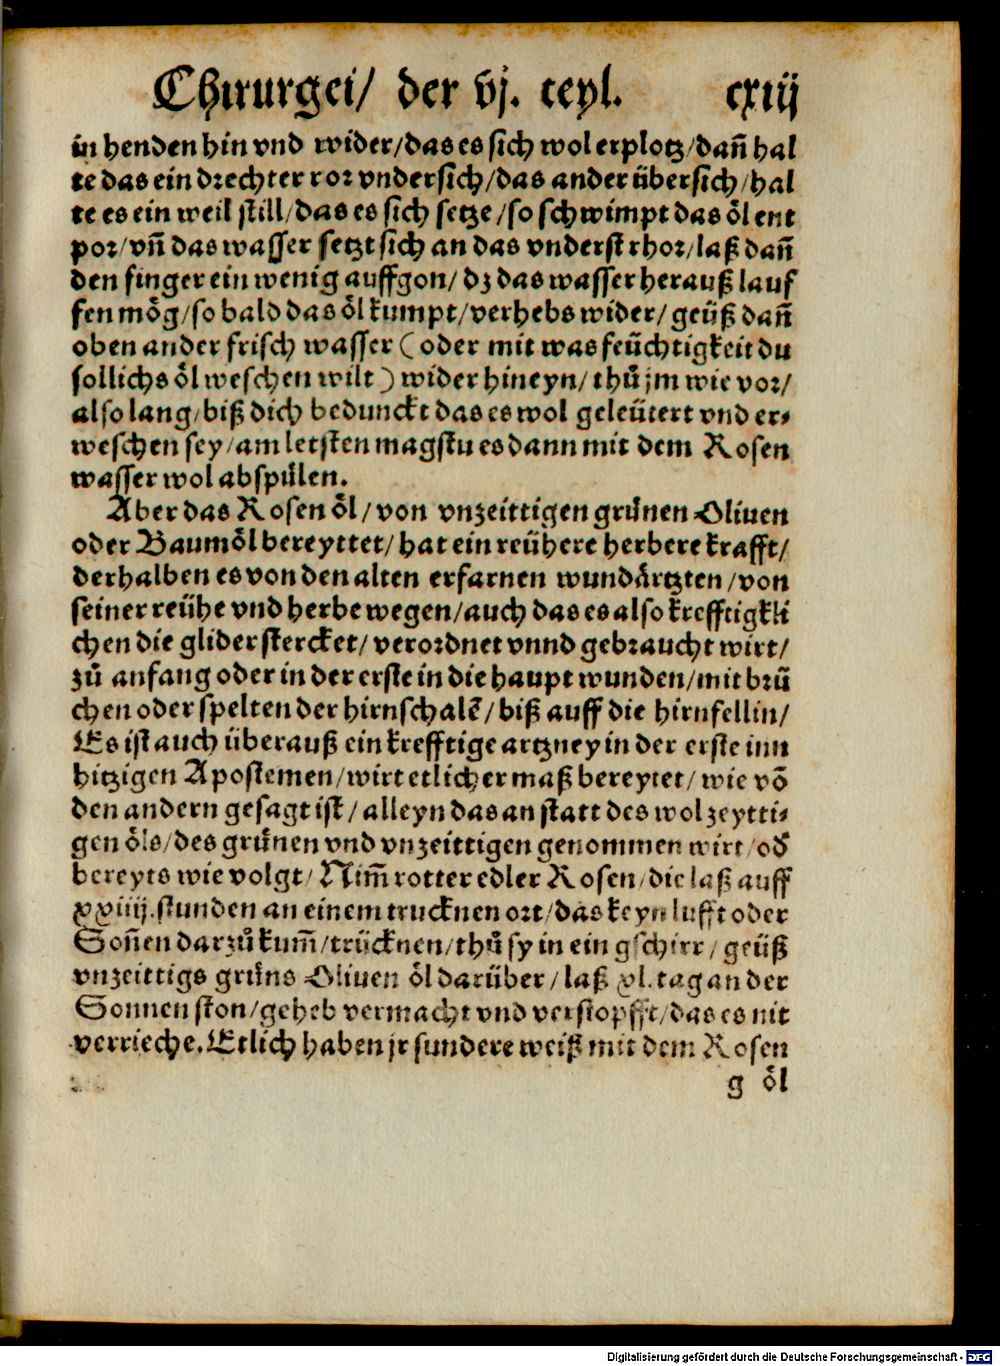 Chirurgei/ der vj. teyl. cxiij
in henden hin vnd wider/das es sich wol erplotz/dañ hal
te das ein drechter ror vndersich/das ander übersich/hal
te es ein weil still/das es sich setze/so schwimpt das öl ent
por/vñ das wasser setzt sich an das vnderst rhor/laß dañ
den finger ein wenig auffgon/dz das wasser herauß lauf
fen mög/so bald das öl kumpt/verhebs wider/geüß dañ
oben ander frisch wasser (oder mit was feüchtigkeit du
sollichs öl weschen wilt) wider hineyn/thů jm wie vor/
also lang/biß dich bedunckt das es wol geleütert vnd er⸗
weschen sey/am letsten magstu es dann mit dem Rosen
wasser wol abspůlen.
Aber das Rosen öl/von vnzeittigen grůnen Oliuen
oder Baumöl bereyttet/hat ein reühere herbere krafft/
derhalben es von den alten erfarnen wundärtzten/von
seiner reühe vnd herbe wegen/auch das es also krefftigkli
chen die glider stercket/verordnet vnnd gebraucht wirt/
zů anfang oder in der erste in die haupt wunden/mit brü
chen oder spelten der hirnschalē/biß auff die hirnfellin/
Es ist auch überauß ein krefftige artzney in der erste inn
hitzigen Apostemen/wirt etlicher maß bereytet/wie vō
den andern gesagt ist/alleyn das an statt des wol zeytti⸗
gen öls/des grůnen vnd vnzeittigen genommen wirt/od
bereyts wie volgt/Nim̄ rotter edler Rosen/die laß auff
xxiiij.stunden an einem trucknen ort/das keyn lufft oder
Soñen darzů kum̄/trücknen/thů sy in ein gschirr/geüß
vnzeittigs grůns Oliuen öl darüber/laß xl. tag an der
Sonnen ston/geheb vermacht vnd verstopfft/das es nit
verrieche. Etlich haben jr sundere weiß mit dem Rosen
g öl
Digitalisierung gefördert durch die Deutsche Forschungsgemeinschaft - DFG